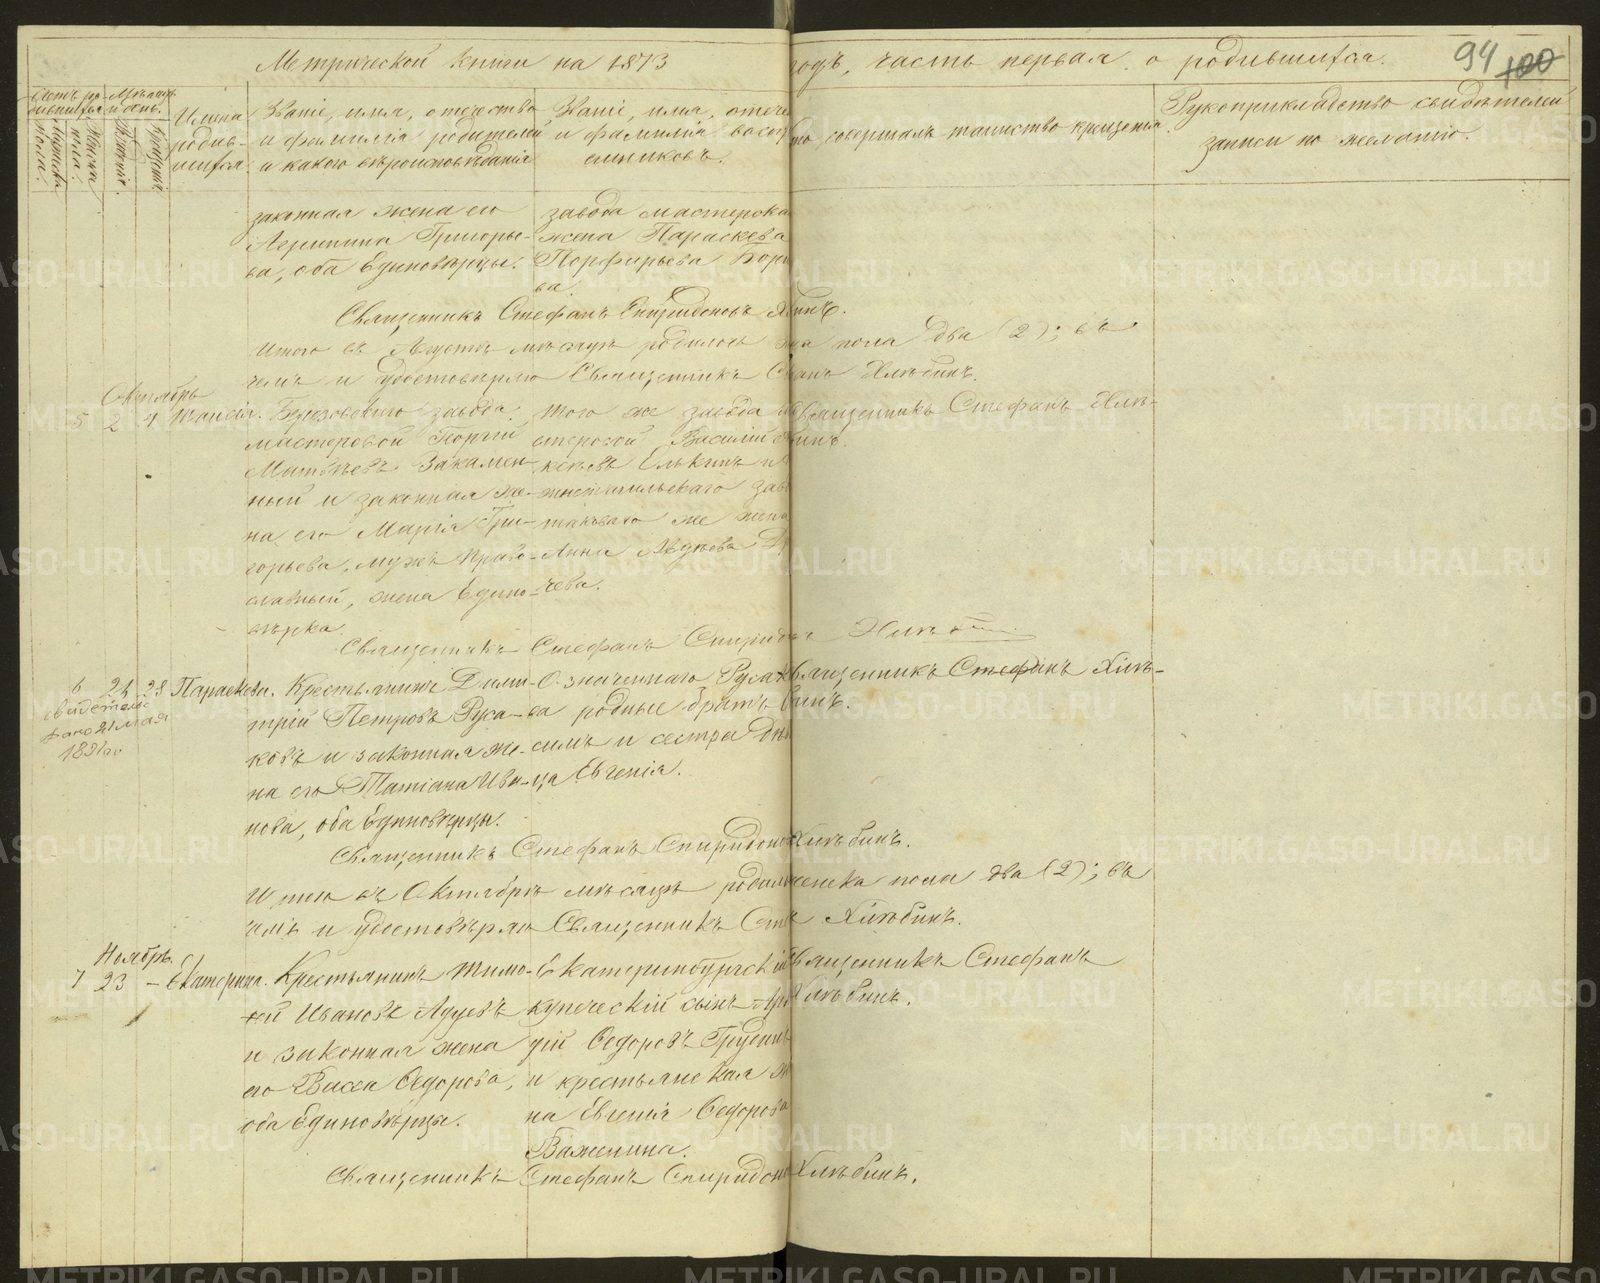 Метрической книги на 1873 годъ, часть первая о родившихся.
94 100
Счетъ родившихся
Мужеска пола.
Женска пола.
Мѣсяцъ и день.
Рожденія.
Крещенія.
Имена родившихся.
Званіе, имя, отчество
и фамилія родителей
и какого вѣроисповѣданія
Званіе, имя, отче
и фамилія воспр
емниковъ.
совершалъ таинство крещенія
Рукоприкладство свидѣтелей
записи по желанію.
законная жена его
Агрипина Григорье-
ва, оба Единовѣрцы.
завода мастерска
жена Параскева
Порфирьева Бори
ва.
Священникъ Стефанъ Спиридоновъ Хлѣбинъ.
Итого въ Августѣ мѣсяцѣ родилось пола два (2); въ
чемъ и удостовѣряю Священникъ Стефанъ Хлѣбинъ.
Октябрь
5 2 4 Таисія.
Березовскаго завода
мастеровой Георгій
Матвѣевъ Закамен-
ный и законная же-
на его Марія Гри-
горьева, мужъ право-
славный, жена Едино-
вѣрка.
того же завода
мастеровой Василій
Елькинъ и
жнетагильскаго зав
таковаго же жена
Анна Авдѣева
чева.
Священникъ Стефанъ Хлѣ-
бинъ.
Священникъ Стефанъ Спиридон Хлѣбинъ
6 26 28 Параскева.
свидетель
дано 21 мая
1891 го
Крестьянинъ Дими-
трій Петровъ Руса-
ковъ и законная же-
на его Татіана Ива-
нова, оба Единовѣрцы.
Означеннаго Русак
ва родные братъ
симъ и сестра Дѣв
ца Евгенія.
Священникъ Стефанъ Хлѣ-
бинъ.
Священникъ Стефанъ Спиридоно Хлѣбинъ.
Итого въ Октябрѣ мѣсяцѣ родил женска пола два (2); въ
чемъ и удостовѣряю Священникъ Сте Хлѣбинъ.
Ноябрь
7 23 – Екатерина.
Крестьянинъ Тимо-
ѳей Ивановъ Адуевъ
и законная жена
его Васса Ѳедорова,
оба Единовѣрцы.
Екатеринбургскій
купеческій сынъ Арка
дій Ѳедоровъ Грудин
и крестьянская же
на Евгенія Ѳедорова
Баженина.
Священникъ Стефанъ
Хлѣбинъ.
Священникъ Стефанъ Спиридоно Хлѣбинъ.
METRIKI.GASO-URAL.RU